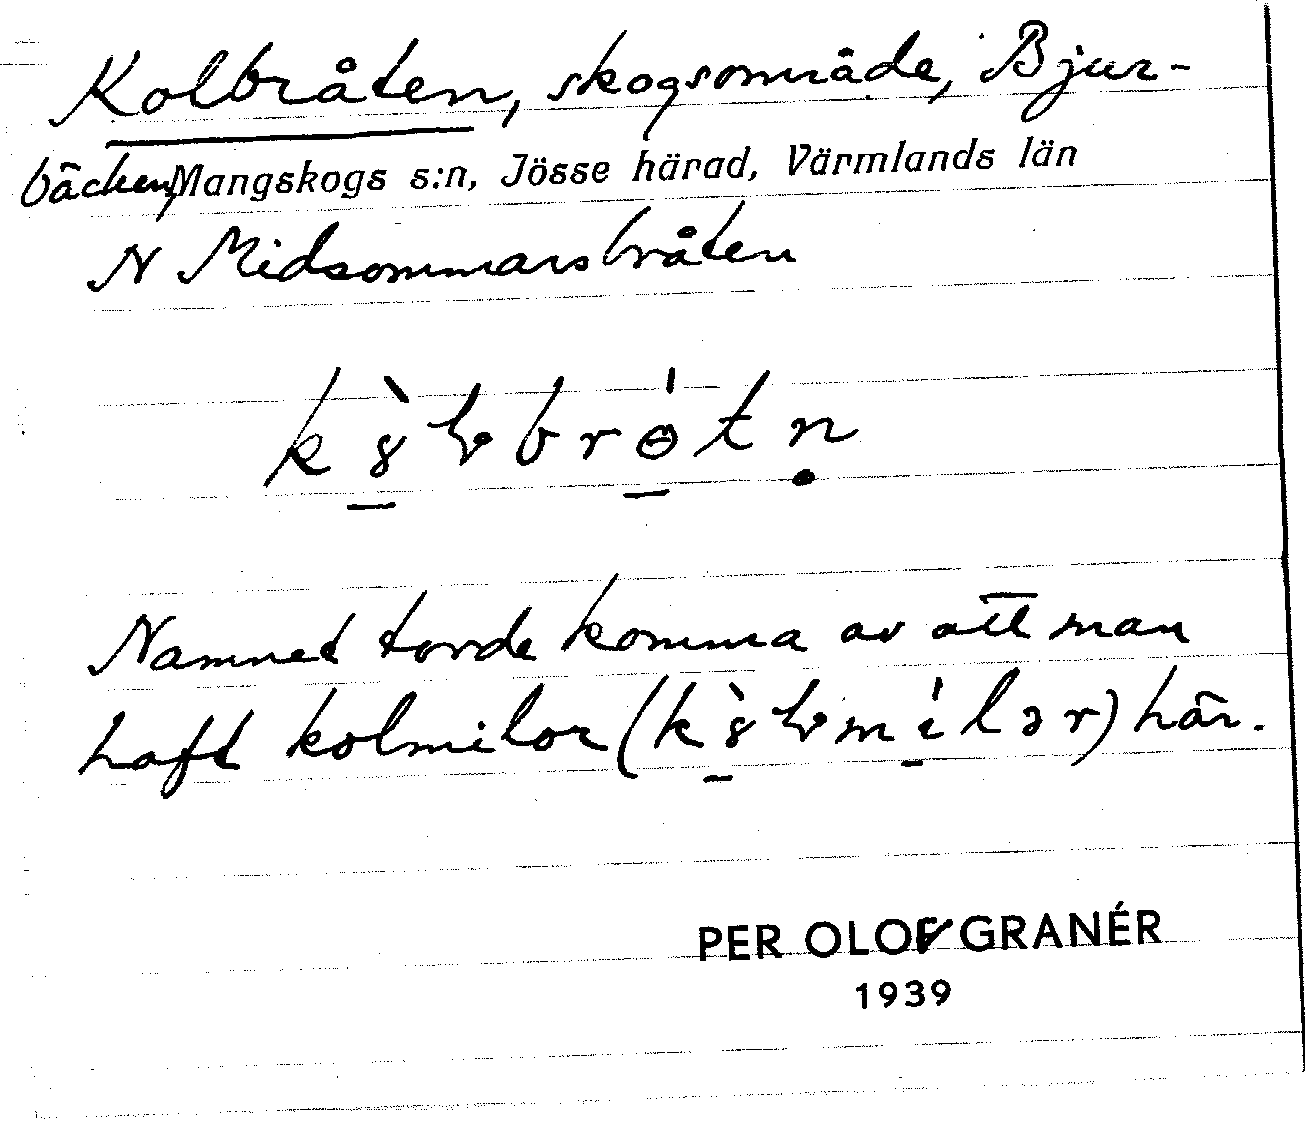 Kolbråten, skogsområde, Bjur-
bäcken, Mangskogs s:n, Jösse härad, Värmlands län
N Midsommarsbråten
Namnet torde komma av att man
haft kolmilor ( ) här.
PER OLOF GRANÉR
1939